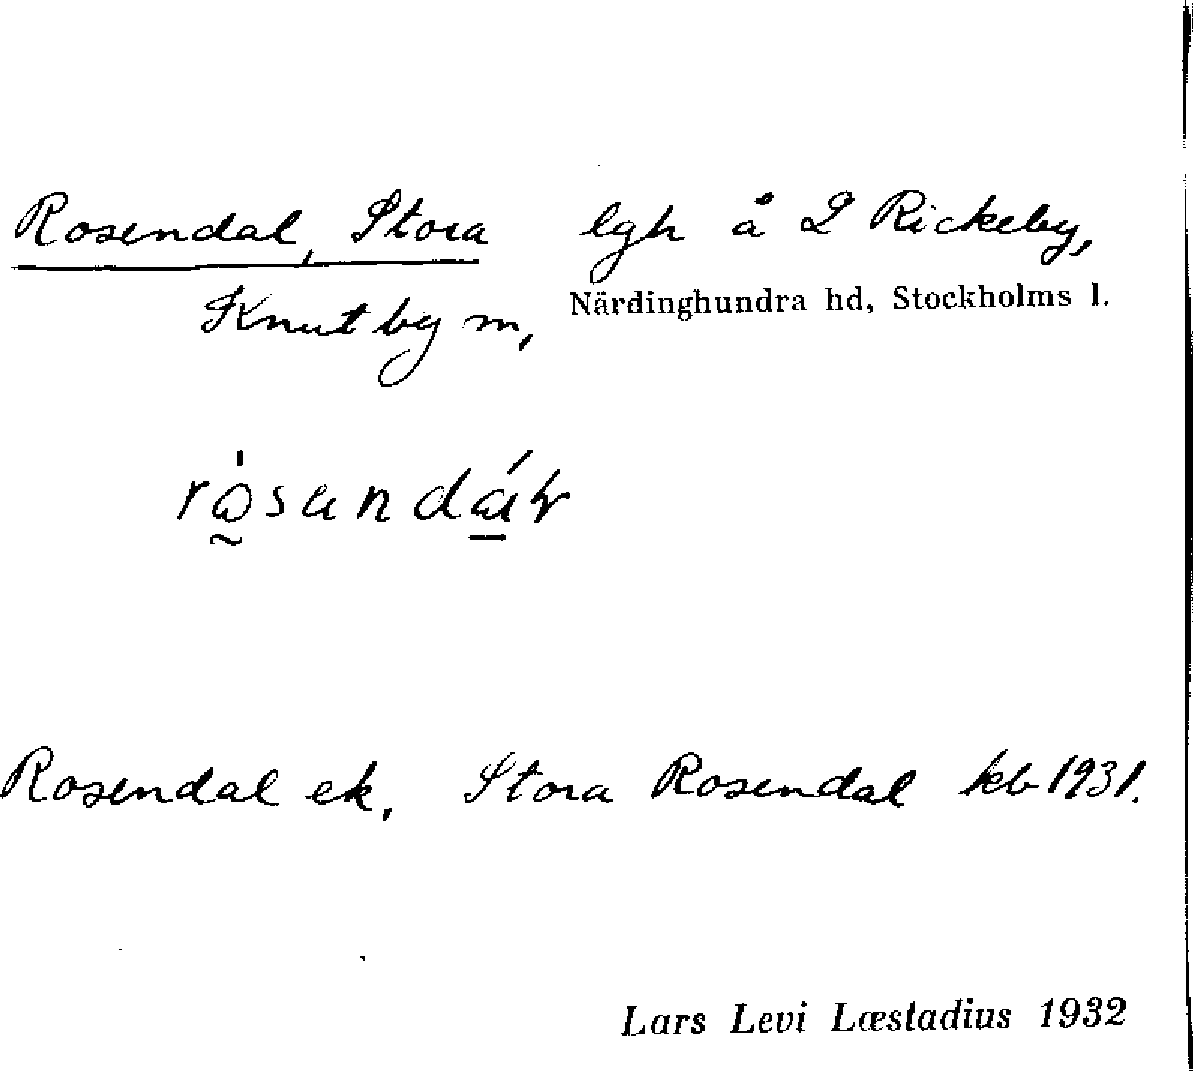 Rosendal, Stora lgh å 2 Rickeby,
Knutby sn, Närdinghundra hd, Stockholms l.
Rosendal ek, Stora Rosendal kb 1931.
Lars Levi Læstadius 1932